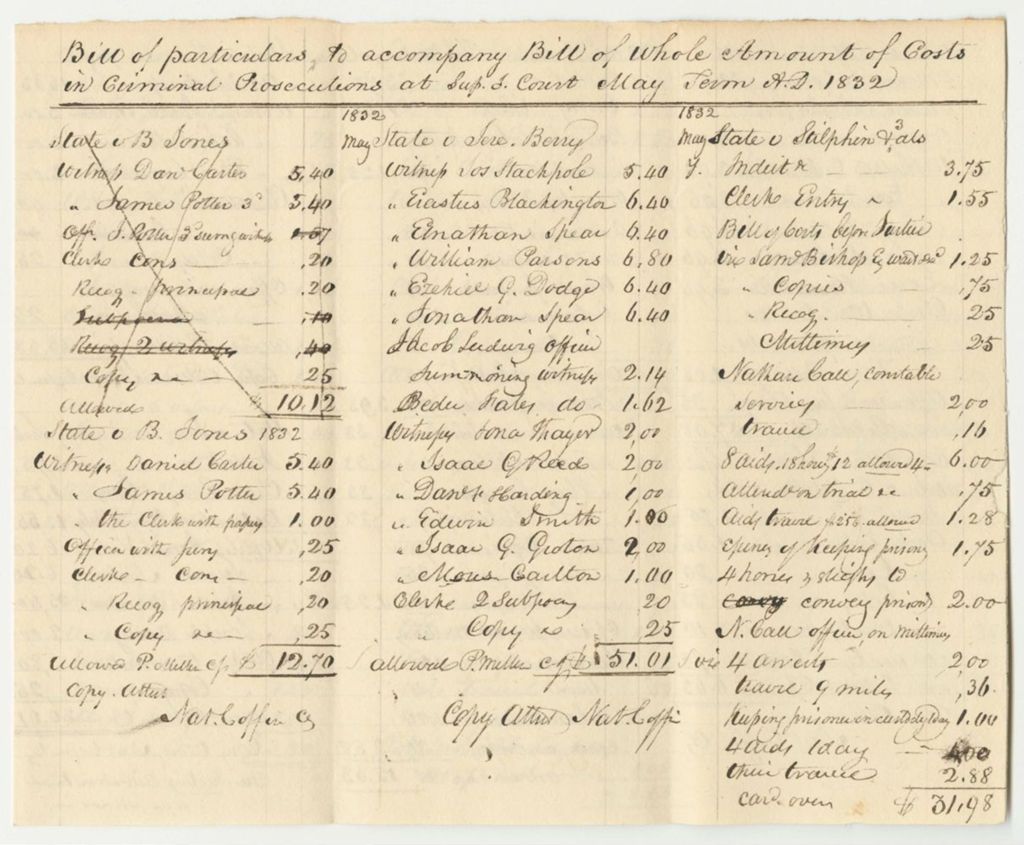 Bill of particulars, to accompany Bill of Whole Amount of Costs
in Criminal Prosecutions at Sup. J. Court May Term A.D. 1832
State v B Jones
Witness Danl Carter 5,40
" James Potter 3d 5.40
Off. J. Potter 3d sumg witness 1.07
Clerks Cons ,20
Recog. Principal .20
Subpoena ,10
Recog 2 witness ,40
Copy &c 25
Allowed $ 10.12
State v B. Jones 1832
Witness Daniel Carter 5.40
" James Potter 5.40
" the Clerk with papers 1.00
Officer with jury ,25
Clerks - Cons - ,20
" Recog principal ,20
" Copy &c ,25
Allowed P. Miller C J $ 12.70
Copy. Attest
Nat. Coffin Ck
1832
May State v Jere. Berry
Witness Jos Stackpole 5.40
" Eastus Blackington 6.40
" Elnathan Spear 6.40
" William Parsons 6,80
" Ezekiel G. Dodge 6.40
" Jonathan Spear 6.40
Jacob Ludwig officer
Summoning witness 2.14
Beder Fales do 1.62
Witness Iona Thayer 2,00
" Isaac G Reed 2,00
" Danl Harding 1,00
" Edwin Smith 1.00
" Isaac G. Groton 2,00
" Moses Carlton 1.00
Clerks 2 Subpoas 20
Copy &c 25
allowed P. Miller C J $ 51.01
Copy Attest Nat. Coffi
1832
May State v Stilphin & 3 als
J. Indict 3.75
Clerks Entry 1.55
Bill of Costs before Justice
viz Saml Bishop Esq writ &c 1.25
" Copies ,75
" Recog. 25
Mittimus 25
Nathan Call, constable
services 2,00
travel ,16
8 aids. 18 hours 12 allowed 4 6.00
Attend on trial &c .75
Aids travel allowed 1.28
Expenses of Keeping prisoners 1.75
4 horses & sleighs to
convey prisoners 2.00
N. Call officer, on mittimus
viz 4 arrests 2,00
travel 9 miles ,36.
Keeping prisoner in custody 1 day 1.00
4 aids 1 day 4.00
their travel 2.88
card over $ 31,98